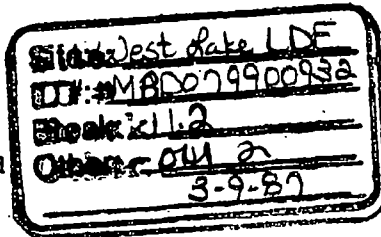 Site: West Lake LDF
ID#: MOD079900932
Break: 11.2
Other: OU 2
3-9-87